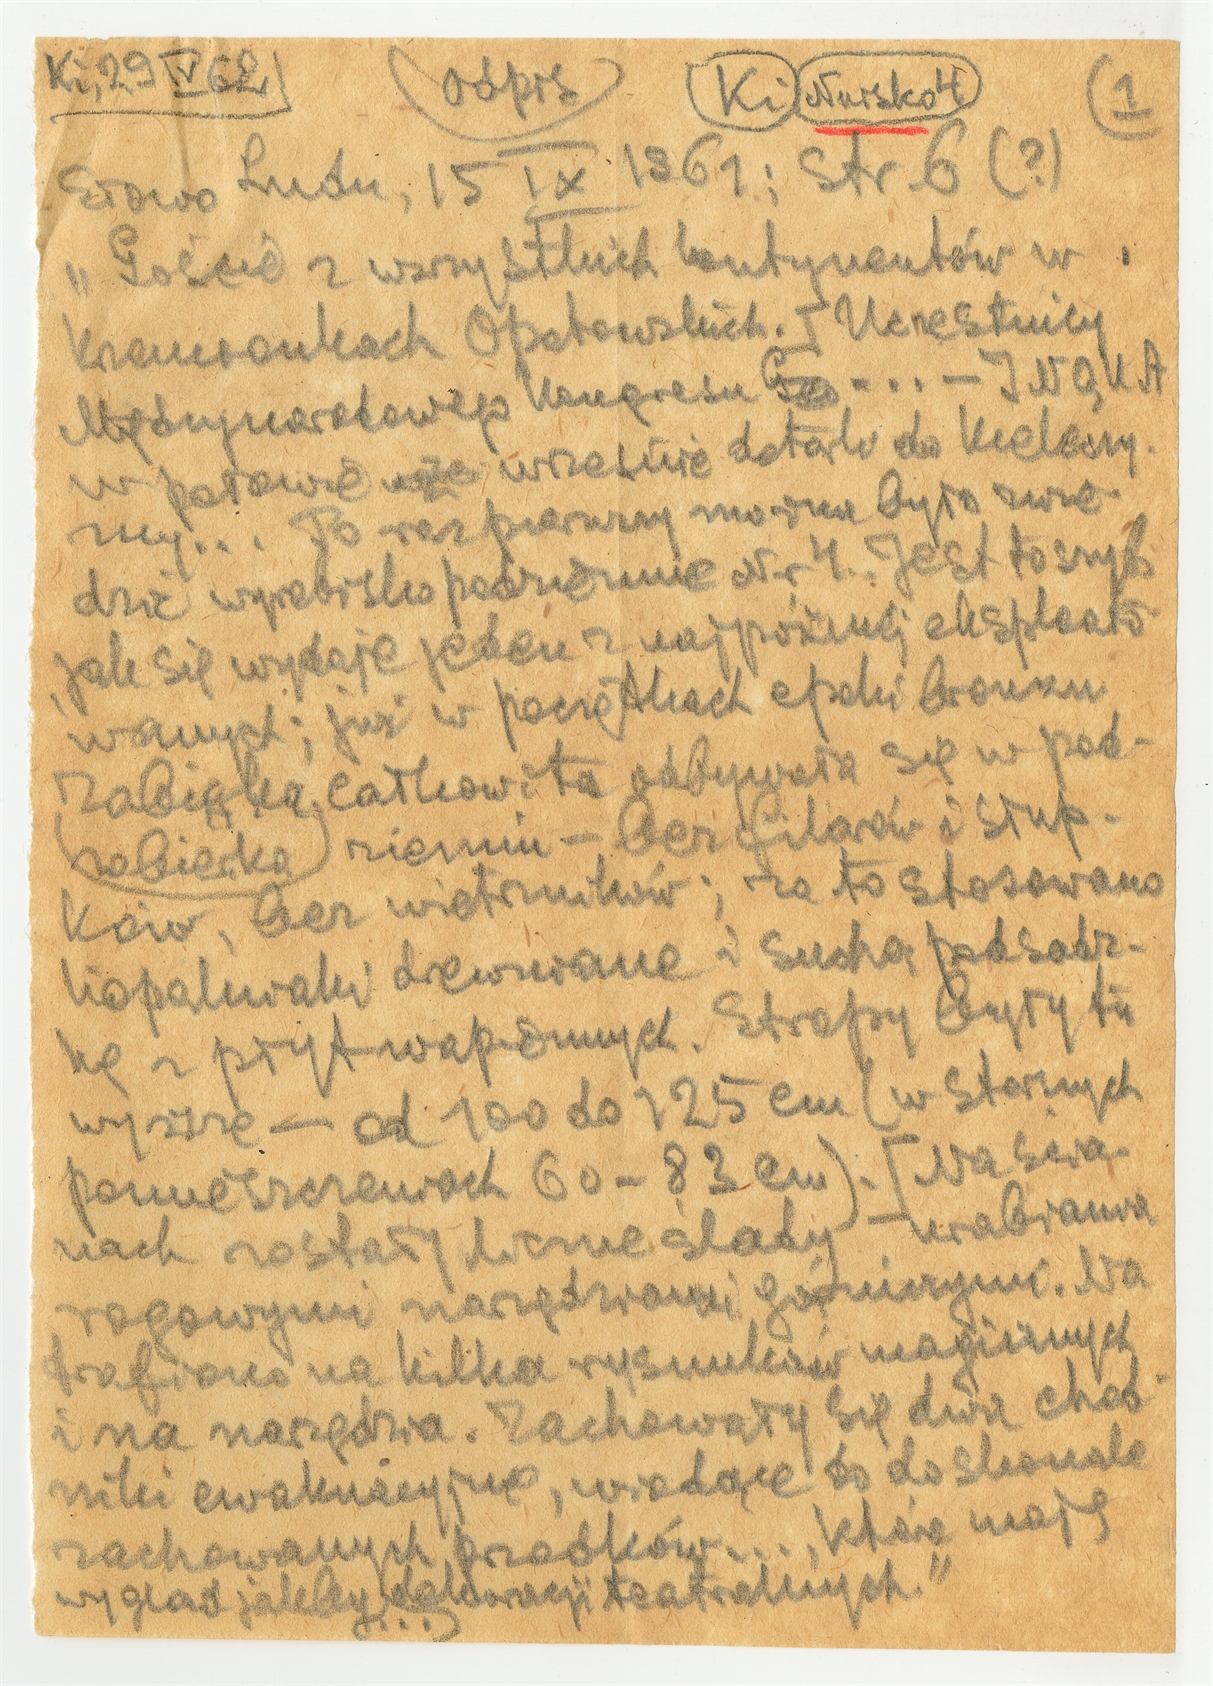 Ki, 29 IV 62 odpis Ki Nurisko 4 1
Słowo Ludu, 15 IX 1961; Str 6 (?)
"Goście z wszystkich kontynentów w
Krzemionkach Opatowskich. [Uczestnicy
Międzynarodowego Kongresu ... – INQUA
w połowie września dotarli do Kielczy-
zny... Po raz pierwszy można było zwie-
dzić wyrobisko podziemne Nr 4. Jest to szyb
jak się wydaje jeden z najpóźniej eksploato-
wanych; już w początkach epoki bronzu
Zabiąrka całkowita odbywała się w pod-
(zabierka) ziemiu – bez filarów i słup-
ków, bez wietrzników; za to stosowano
kopalniaki drewniane i suchą podsadz-
kę z płyt wapiennych. Stropy były tu
wyższe – od 100 do 125 cm (w starszych
pomieszczeniach 60 – 83 cm). [Na ścia-
nach zostały liczne ślady – urabiania
rogowymi narzędziami górniczymi. Na
trafiono na kilka rysunków magicznych
i na narzędzia. Zachowały się dwa chod-
niki ewakuacyjne, wiodące do doskonale
zachowanych przodków..., które mają
wygląd jakby dekoracji teatralnych."
...